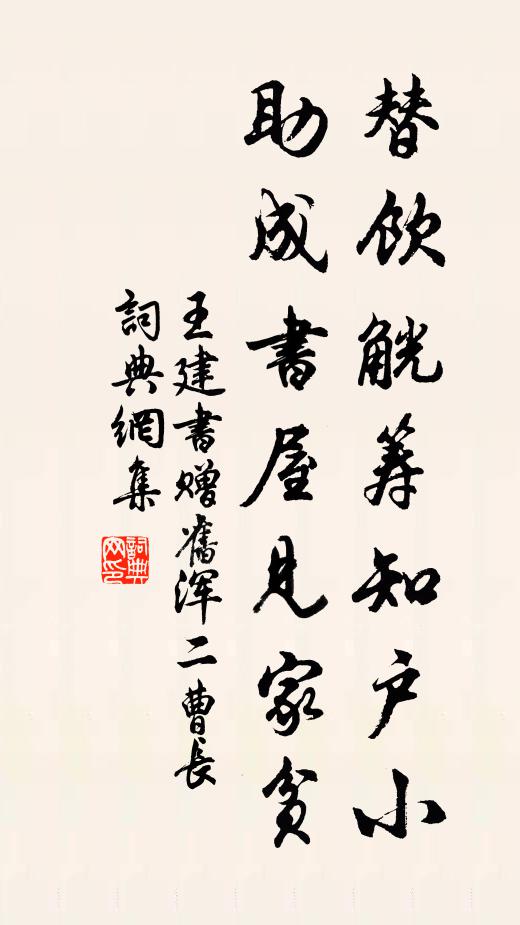 替飲觥筹知户小
助成書屋見家貧
王建書赠舊渾二曹長
詞典網集
詞典网印